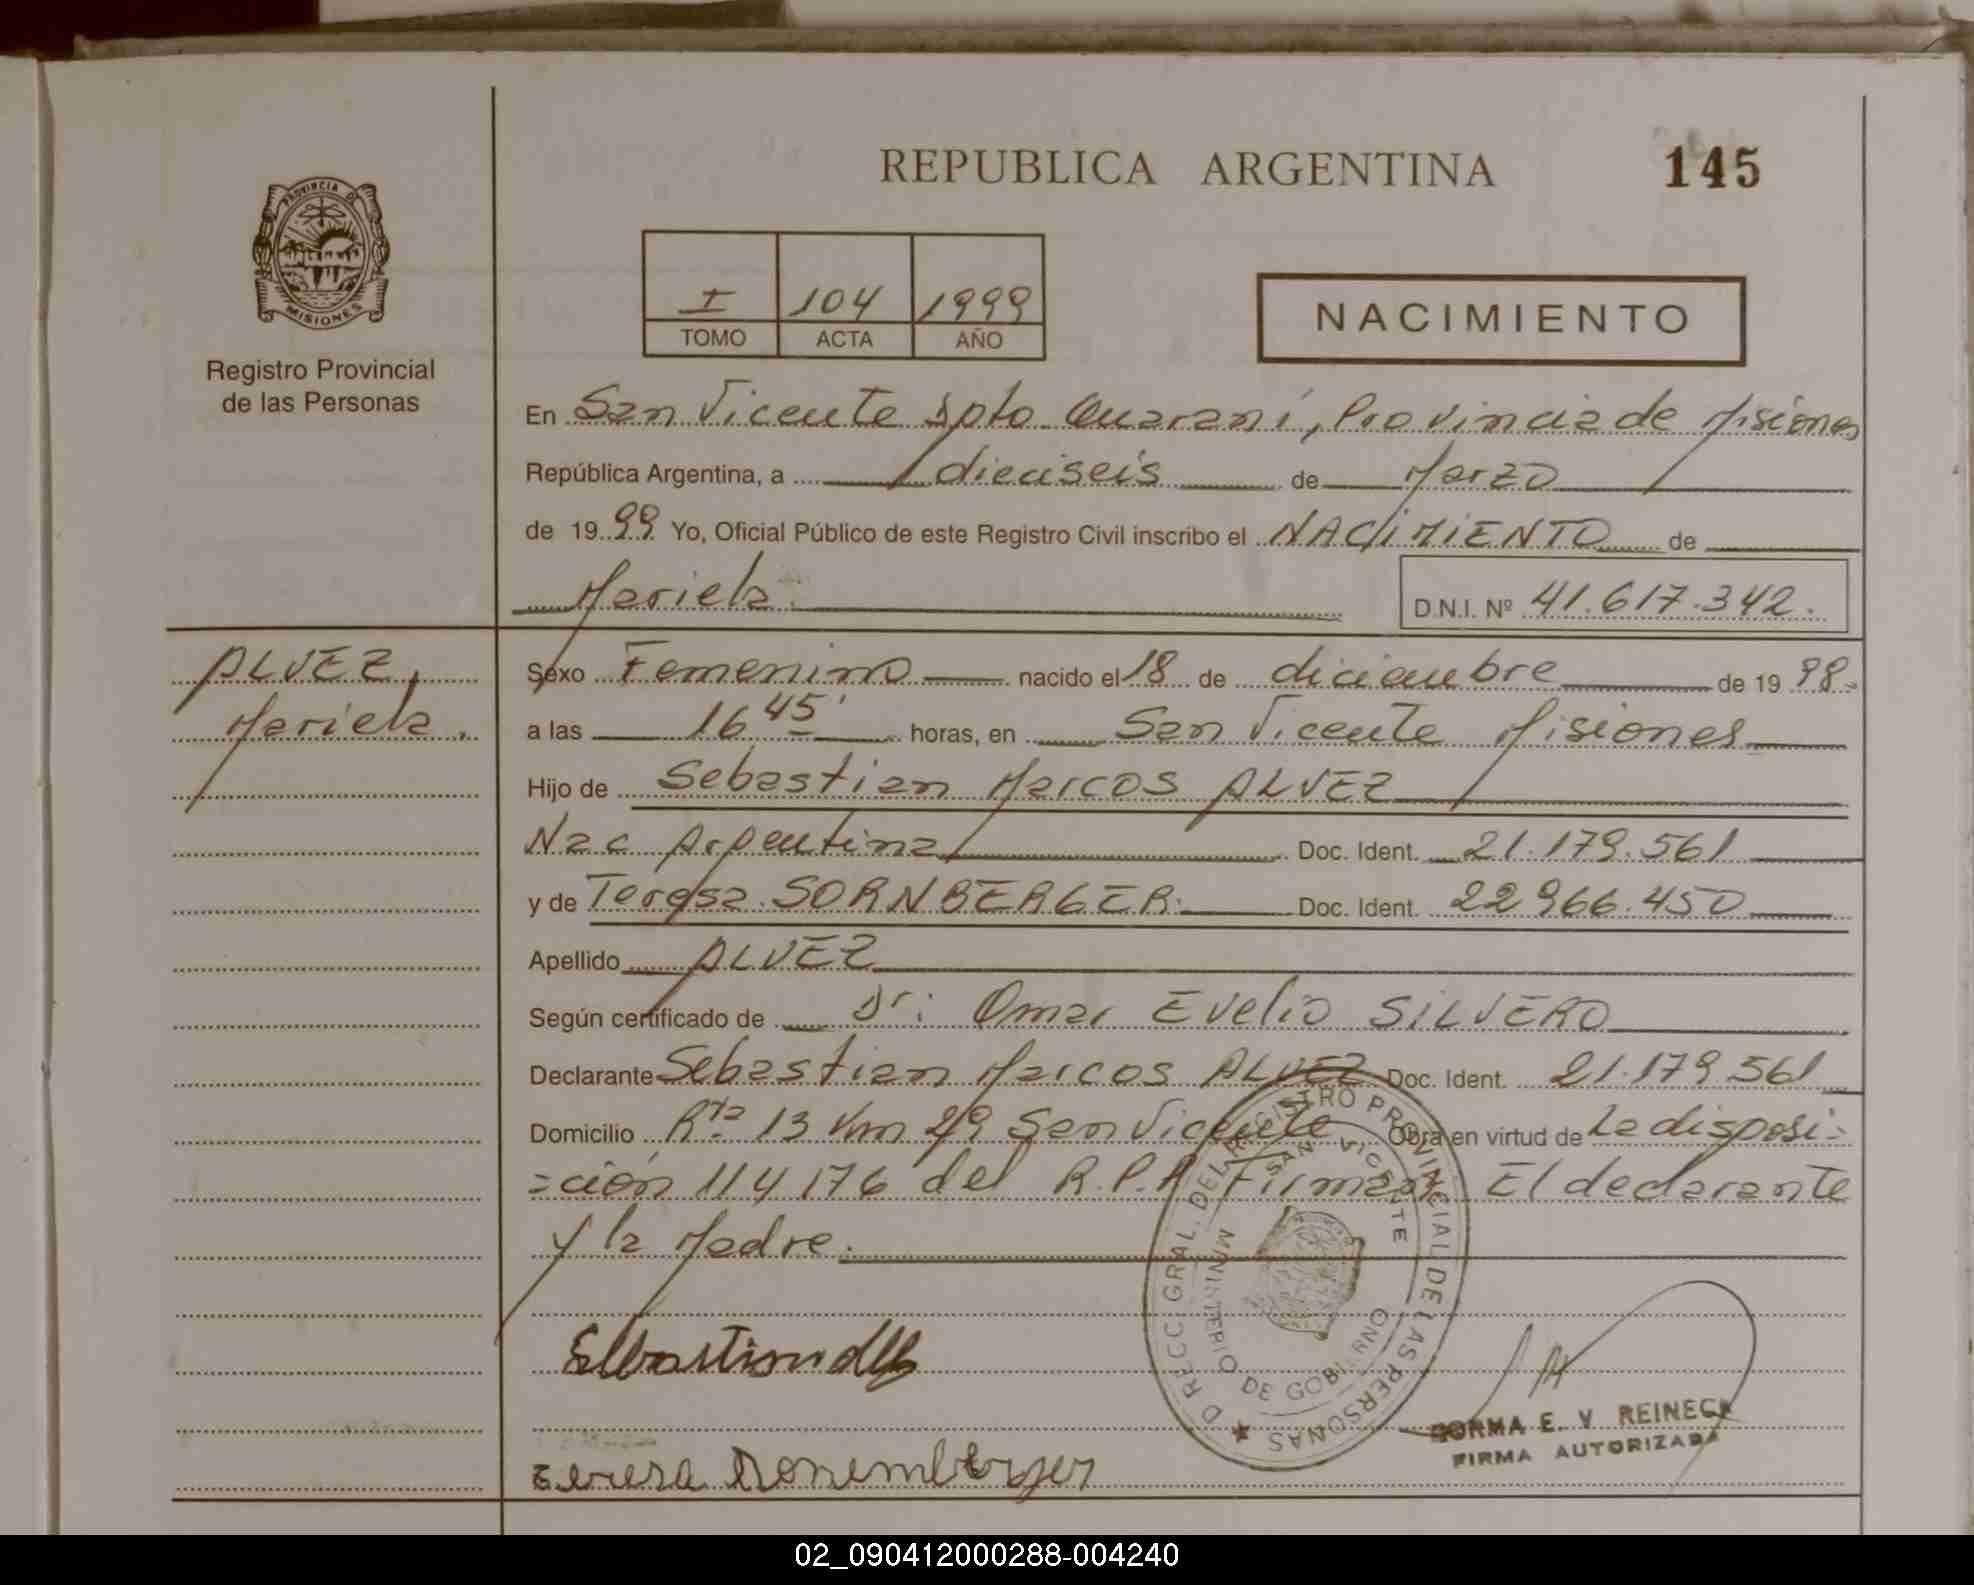 REPUBLICA ARGENTINA
145
PROVINCIA DE
MISIONES
Registro Provincial
de las Personas
I 104 1999
TOMO ACTA AÑO
NACIMIENTO
En San Vicente Dpto Guaraní, Provincia de Misiones
República Argentina, a dieciseis de Marzo
de 1999 Yo, Oficial Público de este Registro Civil inscribo el NACIMIENTO de
Mariela.
D.N.I. Nº 41.617.342.
ALVEZ,
Mariela.
Sexo Femenino nacido el 18 de diciembre de 1998.
a las 16 45' horas, en San Vicente Misiones
Hijo de Sebastian Marcos ALVEZ
Nac Argentina Doc. Ident. 21.179.561
y de Teresa SORNBERGER. Doc. Ident. 22966.450
Apellido ALVEZ
Según certificado de Dr: Omar Evelio SILVERO
Declarante Sebastian Marcos ALVEZ Doc. Ident. 21.179561
Domicilio Rta 13 Km 29 San Vicente Obra en virtud de La disposi=
=ción 114176 del R.P.P. Firman El declarante
y la Madre.
DIRECC. GRAL. DEL REGISTRO PROVINCIAL DE LAS PERSONAS
SAN VICENTE
MINISTERIO DE GOBIERNO
NORMA E. V. REINECK
FIRMA AUTORIZADA
02_090412000288-004240